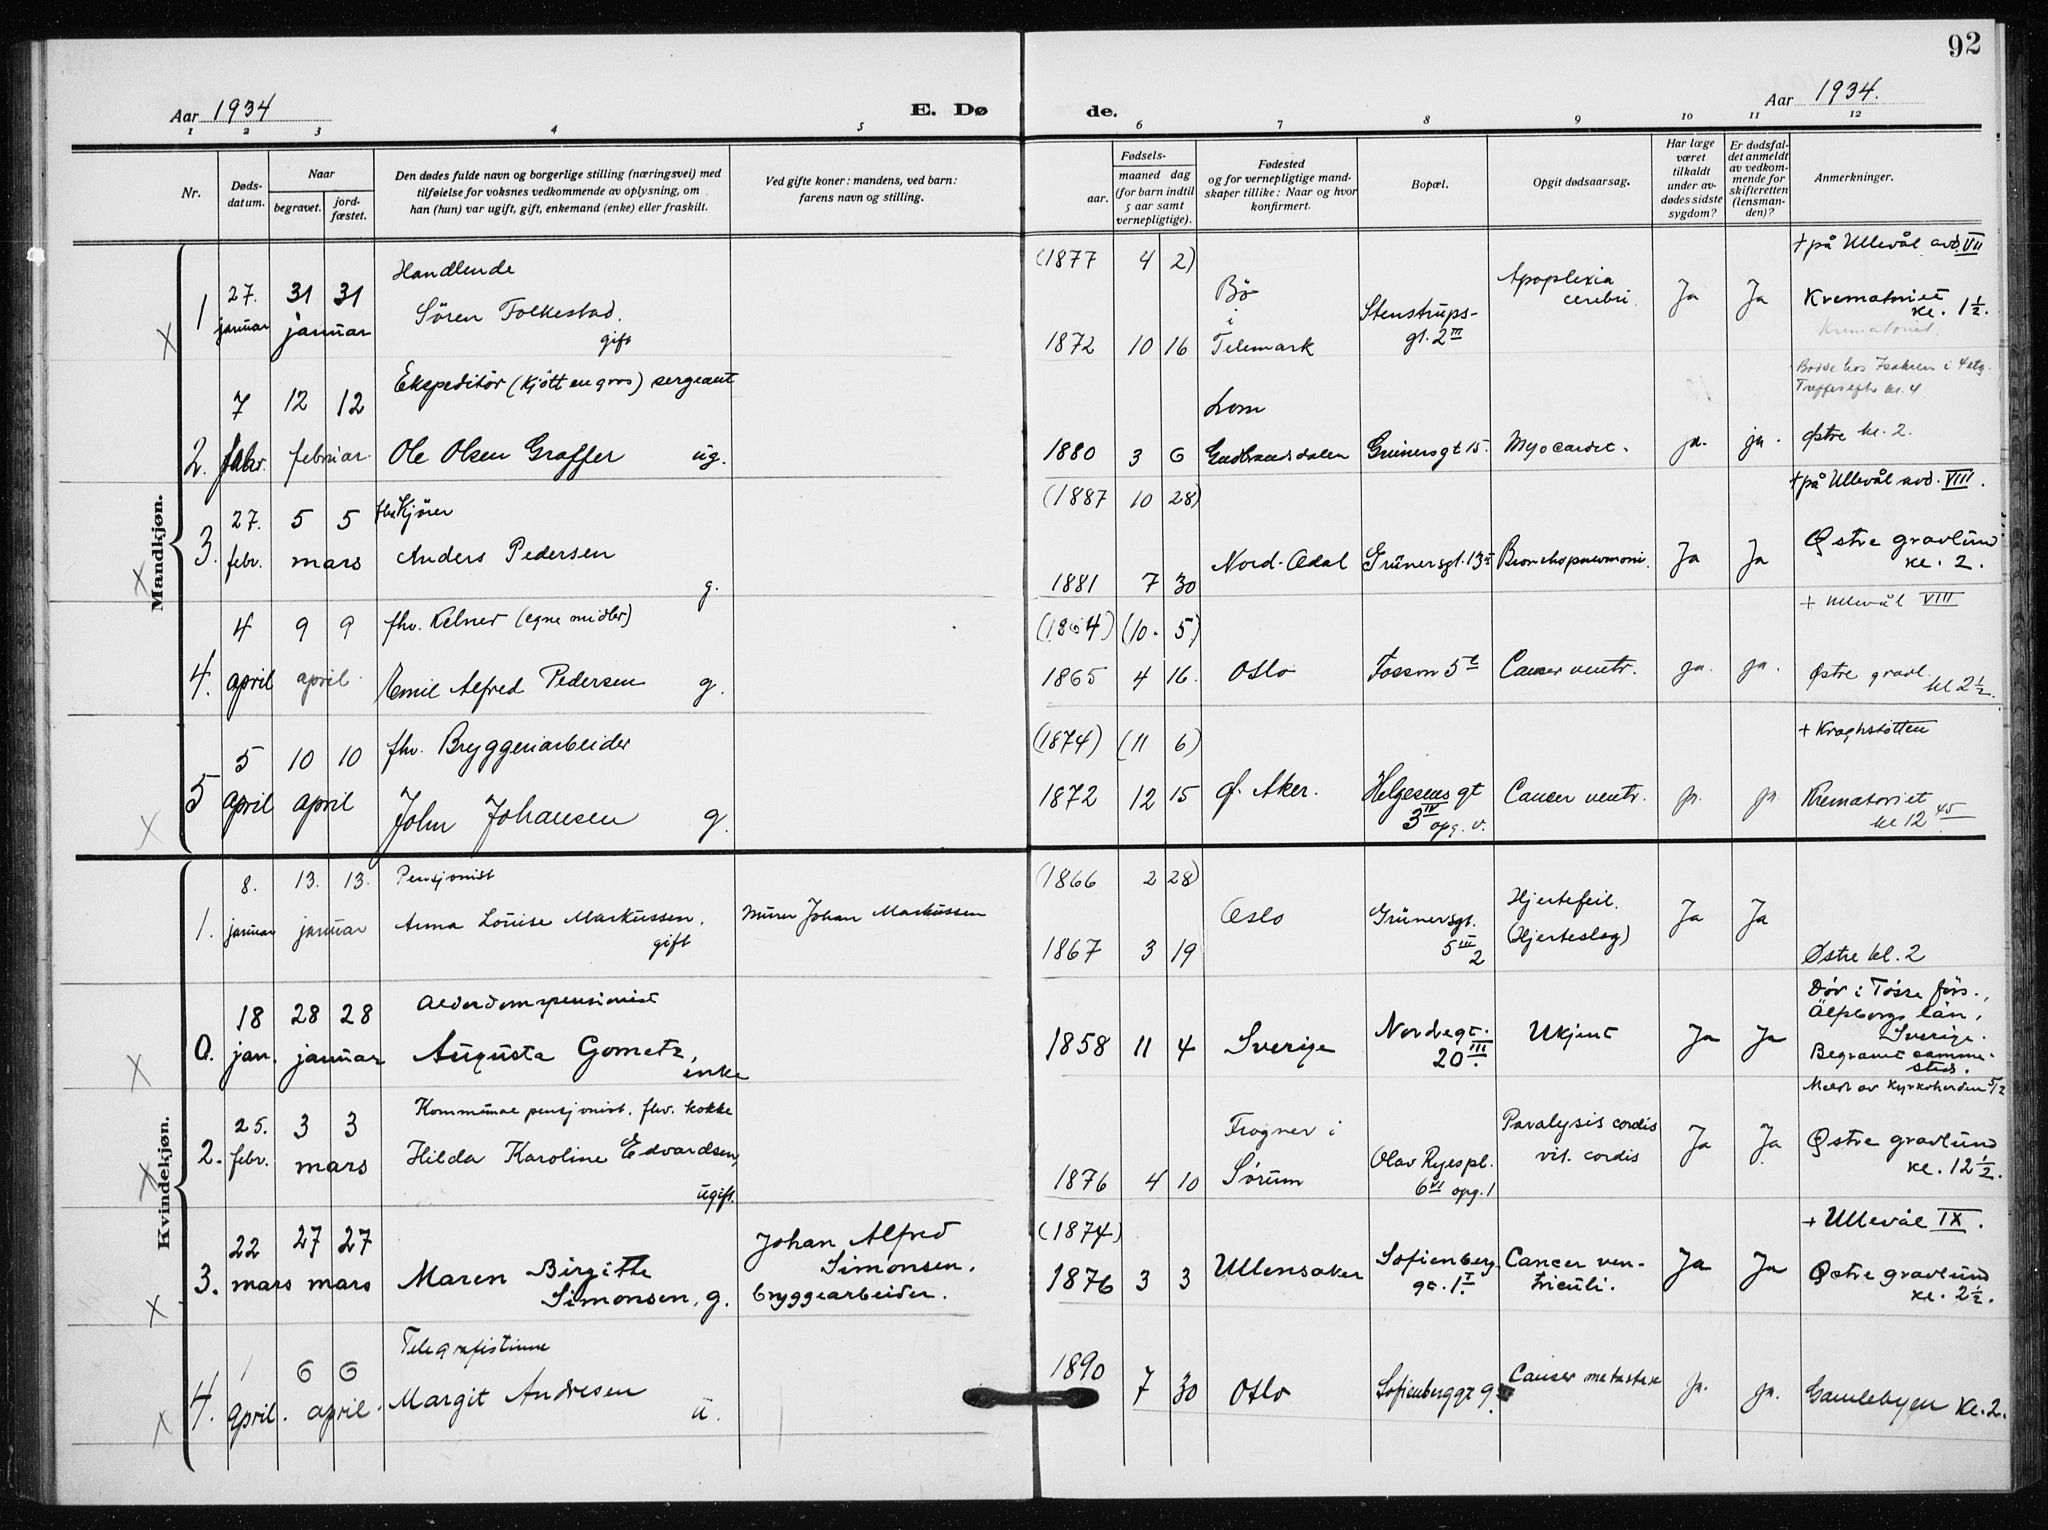 92
Aar 1934
E. Dø
de.
Aar 1934.
1 2 3 4 5 6 7 8 9 10 11 12
Nr.
Døds-
datum.
Naar
begravet.
jord-
fæstet.
Den dødes fulde navn og borgerlige stilling (næringsvei) med
tilføielse for voksnes vedkommende av oplysning, om
han (hun) var ugift, gift, enkemand (enke) eller fraskilt.
Ved gifte koner: mandens, ved barn:
farens navn og stilling.
Fødsels-
aar.
maaned dag
(for barn indtil
5 aar samt
vernepligtige).
Fødested
og for vernepligtige mand-
skaper tillike: Naar og hvor
konfirmert.
Bopæl.
Opgit dødsaarsag.
Har læge
været
tilkaldt
under av-
dødes sidste
sygdom?
Er dødsfal-
det anmeldt
av vedkom-
mende for
skifteretten
(lensman-
den)?
Anmerkninger.
Mandkjøn.
1
27.
januar
31
31
januar
Handlende
Sören Folkestad.
gift
(1877 4 2)
1872 10 16
Bö
i
Telemark
Stenstrups-
gt. 2 III
Apoplexia
cerebri
Ja
Ja
+ på Ullevål avd. VII
Krematoriet
kl. 1½.
Krematoriet.
2.
7
febr.
12
12
februar.
Ekspeditör (kjött engros) sergeant
Ole Olsen Graffer ug.
1880 3 6
Lom
Gudbrandsdalen
Grünersgt 15.
Myocardit.
ja.
ja.
Bodde hos Isaksen i 4 etg.
Treffes efter kl. 4
Østre kl. 2.
3.
27.
febr.
5
5
mars
fhv. Kjörer
Anders Pedersen
g.
(1887 10 28)
1881 7 30
Nord-Odal
Grünersgt. 13 II
Bronchopneumoni.
Ja
Ja
+ på Ullevål avd. VIII.
Østre gravlund
kl. 2.
4.
4
april
9
9
april.
fhv. Kelner (egne midler)
Emil Alfred Pedersen g.
(1864) (10. 5)
1865 4 16.
Oslo
Fossvn 5
Cancer ventr.
ja.
ja.
+ Ullevål VIII
Østre gravl.
kl 2½.
5
5
april
10
10
april
fhv. Bryggeriarbeider
John Johansen g.
(1874) (11 6)
1872 12 15
Ø. Aker.
Helgesens gt
3 IV opg. v.
Cancer ventr.
ja.
ja.
+ Kroghstötten
Krematoriet
kl 12 45
Kvindekjøn.
1.
8.
januar
13.
13.
januar
Pensjonist
Anna Louise Markussen,
gift
Murer Johan Markussen
(1866 2 28)
1867 3 19
Oslo
Grünersgt.
5 III
2
Hjertefeil.
(Hjerteslag)
Ja
Ja
Østre kl. 2
0.
18
jan.
28
28
januar
Alderdomspensionist
Augusta Gometz,
enke
1858 11 4
Sverige
Nordregt.
20 III.
Ukjent
Ja
Ja
Död i Tösse förs.,
Älfsborgs län,
Sverige.
Begravet samme-
sted.
Meldt av Kyrkoherden 5/2
2.
25.
febr.
3
3
mars
Kommunal pensjonist, fhv. kokke
Hilda Karoline Edvardsen,
ugift.
1876 4 10
Frogner i
Sörum
Olav Ryes pl.
6 VI opg. 1
Paralysis cordis
vit. cordis
Ja
Ja
Østre gravlund
kl. 12½.
3.
22
mars
27
27
mars
Maren Birgitte
Simonsen, g.
Johan Alfred
Simonsen,
bryggearbeider.
(1874)
1876 3 3
Ullensaker
Sofienberg
gt. 1 I.
Cancer ven-
triculi.
Ja
Ja
+ Ullevål IX.
Østre gravlund
kl. 2½.
4.
1
april.
6
6
april.
Telegrafistinne
Margit Andresen
u.
1890
7 30
Oslo
Sofienberggt 9
Cancer metastase
ja.
ja.
Gamlebyen kl. 2.